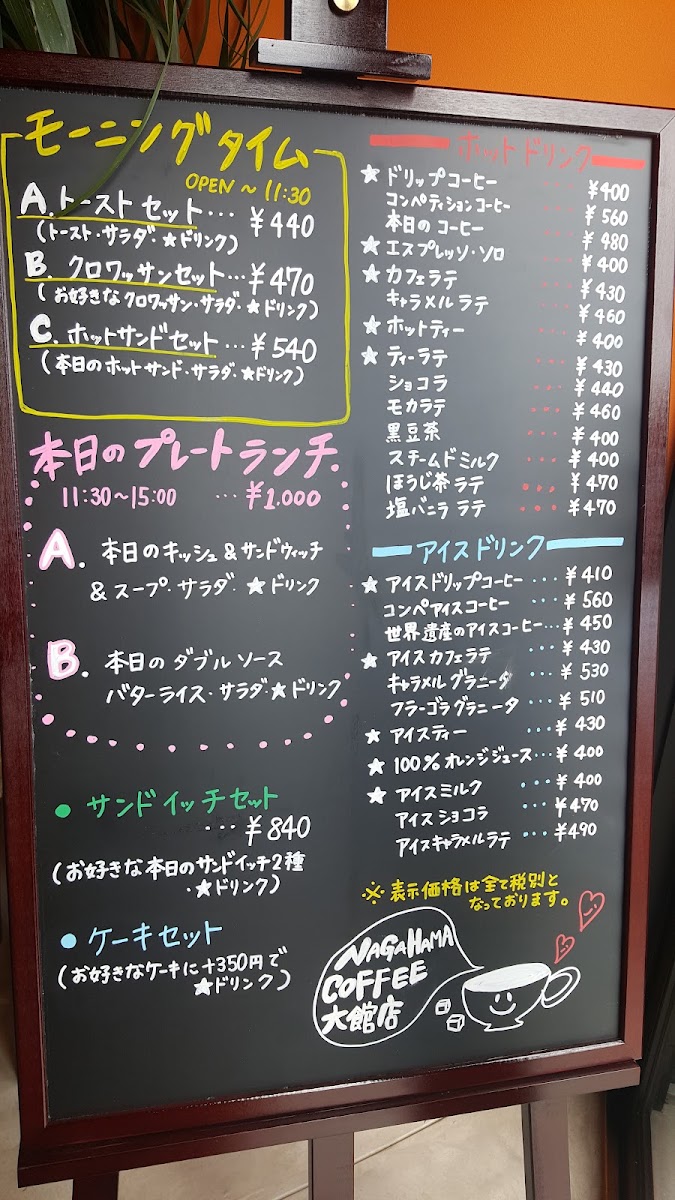 モーニングタイム
OPEN～11:30
A.トーストセット…¥440
(トースト・サラダ・★ドリンク)
B. クロワッサンセット…¥470
(お好きなクロワッサン・サラダ・★ドリンク)
C. ホットサンドセット…¥540
(本日のホットサンド・サラダ・★ドリンク)
本日のプレートランチ
11:30～15:00 …¥1,000
A. 本日のキッシュ&サンドウィッチ
&スープ・サラダ・★ドリンク
B. 本日のダブルソース
バターライス・サラダ★ドリンク
• サンドイッチセット
…¥840
(お好きな本日のサンドイッチ2種
・★ドリンク)
• ケーキセット
(お好きなケーキに+350円で
★ドリンク)
ホットドリンク
★ドリップコーヒー …¥400
コンペティションコーヒー …¥560
本日のコーヒー …¥480
★エスプレッソ・ソロ …¥400
★カフェラテ …¥430
キャラメルラテ …¥460
★ホットティー …¥400
★ティーラテ …¥430
ショコラ …¥440
モカラテ …¥460
黒豆茶 …¥400
スチームドミルク …¥400
ほうじ茶ラテ …¥470
塩バニララテ …¥470
アイスドリンク
★アイスドリップコーヒー …¥410
コンペアイスコーヒー …¥560
世界遺産のアイスコーヒー…¥450
★アイスカフェラテ …¥430
キャラメルグラニータ …¥530
フラーゴラグラニータ …¥510
★アイスティー …¥430
★100%オレンジジュース…¥400
★アイスミルク …¥400
アイスショコラ …¥470
アイスキャラメルラテ …¥490
※表示価格は全て税別と
なっております。
NAGAHAMA
COFFEE
大館店